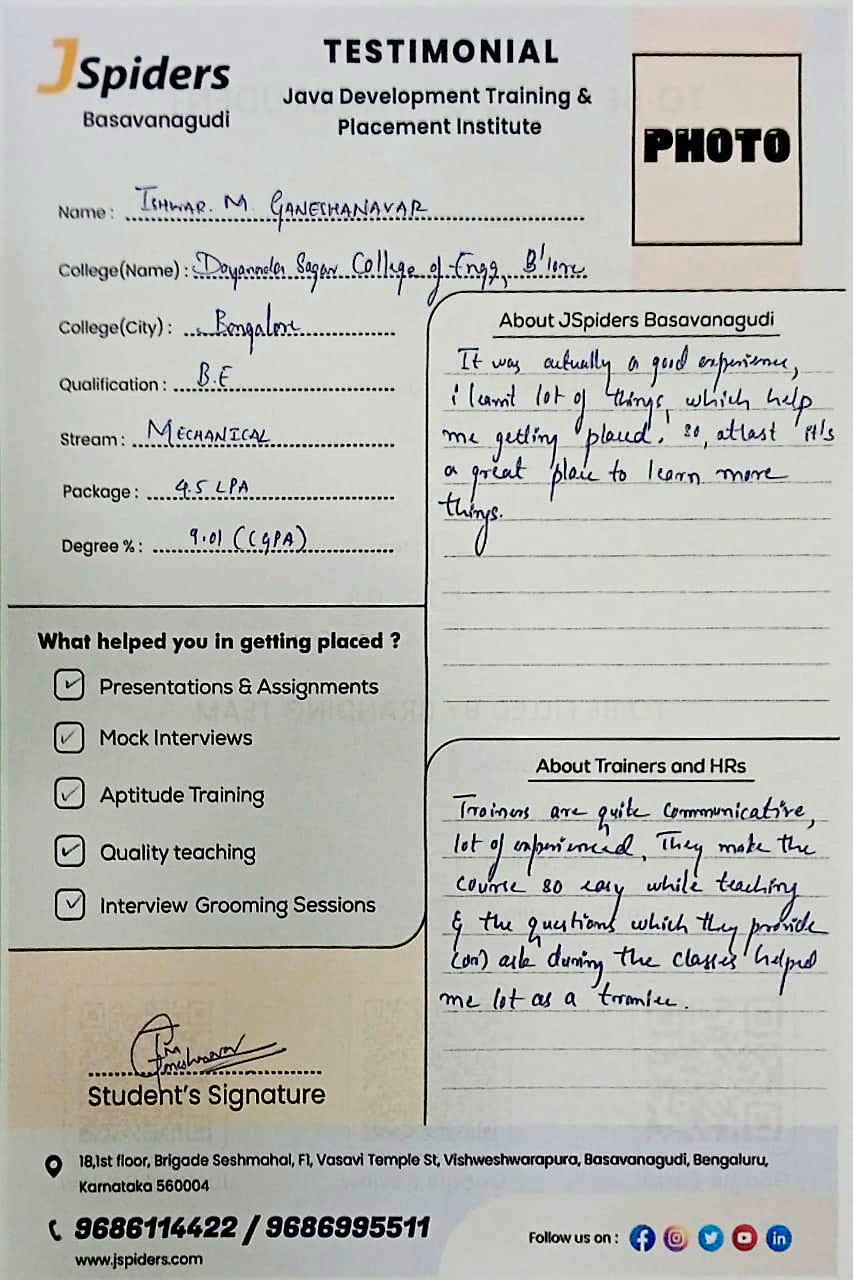 JSpiders
Basavanagudi
TESTIMONIAL
Java Development Training &
Placement Institute
PHOTO
Name : ISHWAR. M. GANESHANAVAR
College(Name) : Dayananda Sagar College of Engg, B'lore
College(City) : Bangalore
Qualification : B.E
Stream : MECHANICAL
Package : 4.5 LPA
Degree % : 9.01 (CGPA)
What helped you in getting placed ?
Presentations & Assignments
Mock Interviews
Aptitude Training
Quality teaching
Interview Grooming Sessions
Student's Signature
About JSpiders Basavanagudi
It was actually a good experience,
i learnt lot of things, which help
me getting placed. so, atlast it's
a great place to learn more
things.
About Trainers and HRs
Trainers are quite communicative,
lot of experienced. They make the
course so easy while teaching
& the questions which they provide
(or) ask during the classes helped
me lot as a trainee.
18,1st floor, Brigade Seshmahal, F1, Vasavi Temple St, Vishweshwarapura, Basavanagudi, Bengaluru,
Karnataka 560004
9686114422 / 9686995511
www.jspiders.com
Follow us on :